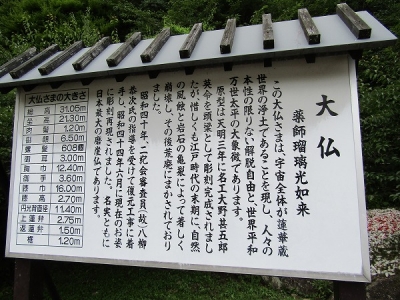 大仏
薬師瑠璃光如来
この大仏さまは、宇宙全体が蓮華蔵
世界の浄土であることを現し、人々の
本性の限りない解脱自由と、世界平和
万世太平の大象徴であります。
原型は天明三年に名工大野甚五郎
英令を頭梁として彫刻完成されまし
たが惜しくも江戸時代の末期に、自然
の風蝕と岩石の亀裂によって著しく
崩壊し、その後荒廃にまかされており
ました。
昭和四十年、二紀会審査員(故)八柳
恭次氏の指導を受けて復元工事に着
手し、昭和四十四年六月に現在のお姿
に彫刻再現されました。名実ともに
日本最大の磨崖仏であります。
大仏さまの大きさ
総高 31.05m
21.30m
1.20m
6.50m
608個
面耳 3.00m
胸巾 12.40m
3.60m
膝巾 16.00m
膝高 2.70m
円光背直径 11.40m
上蓮弁 2.75m
返蓮弁 1.50m
框 1.20m